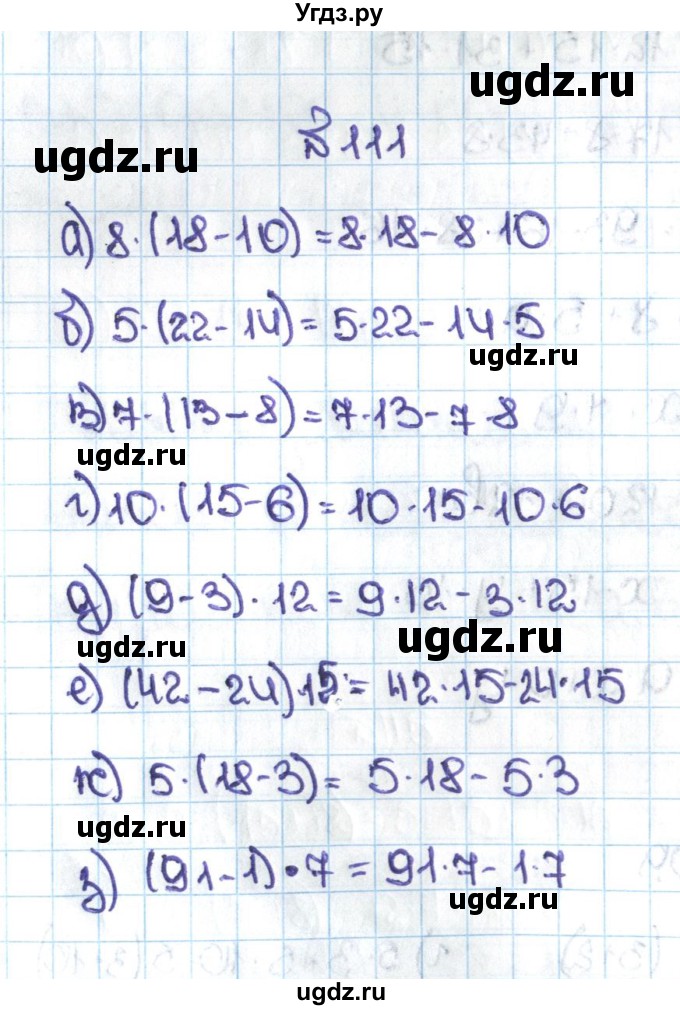 Угдз.ру
ugdz.ru
№ 111
ugdz.ru
а) 8·(18-10)=8·18-8·10
б) 5·(22-14)=5·22-14·5
ugdz.ru
в) 7·(13-8)=7·13-7·8
ugdz.ru
г) 10·(15-6)=10·15-10·6
д) (9-3)·12=9·12-3·12
ugdz.ru
ugdz.ru
е) (42-24)15=42·15-24·15
ж) 5·(18-3)=5·18-5·3
ugdz.ru
ugdz.ru
з) (91-1)·7=91·7-1·7
ugdz.ru
ugdz.ru